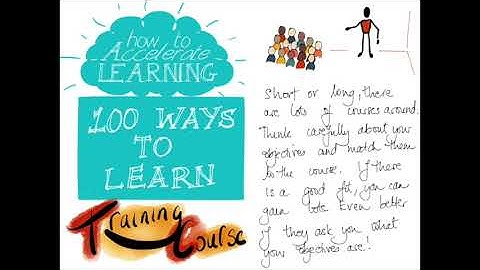 how to
Accelerate
LEARNING
100 WAYS
TO
LEARN
Training
Course
Short or long, there
are lots of courses around.
Think carefully about your
objectives and match them
to the course. If there
is a good fit, you can
gain lots. Even better
if they ask you what
your objectives are!